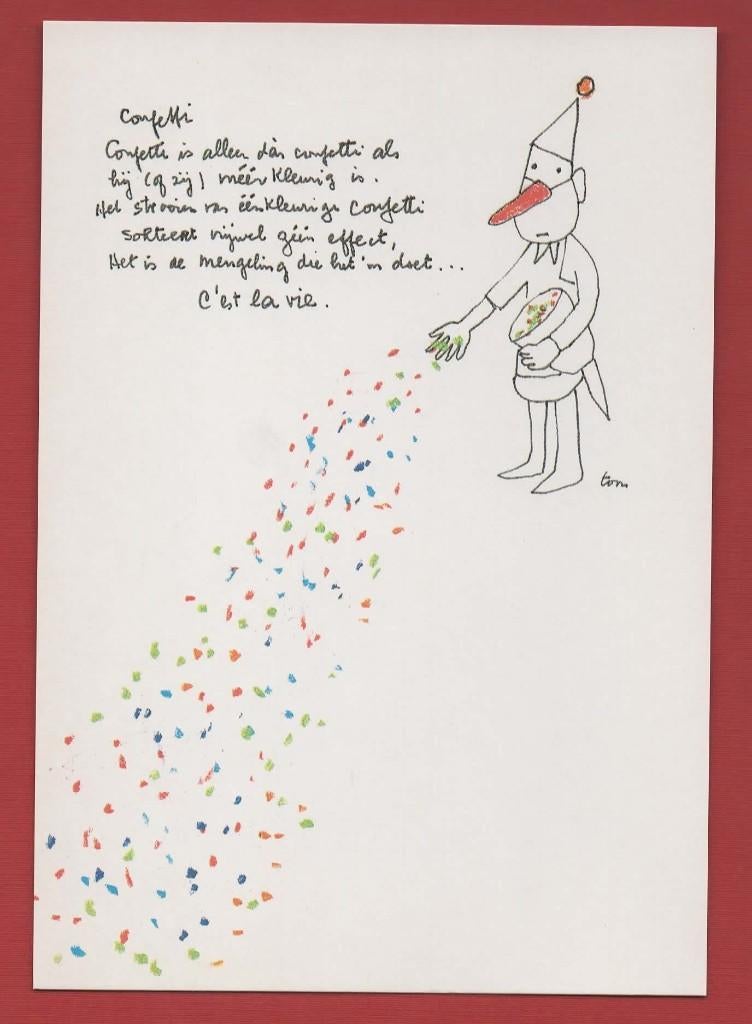 Confetti
Confetti is alleen dàn confetti als
hij (of zij) méérkleurig is.
Het strooien van éénkleurige Confetti
sorteert vrijwel géén effect,
Het is de mengeling die het 'm doet...
C'est la vie.
tom